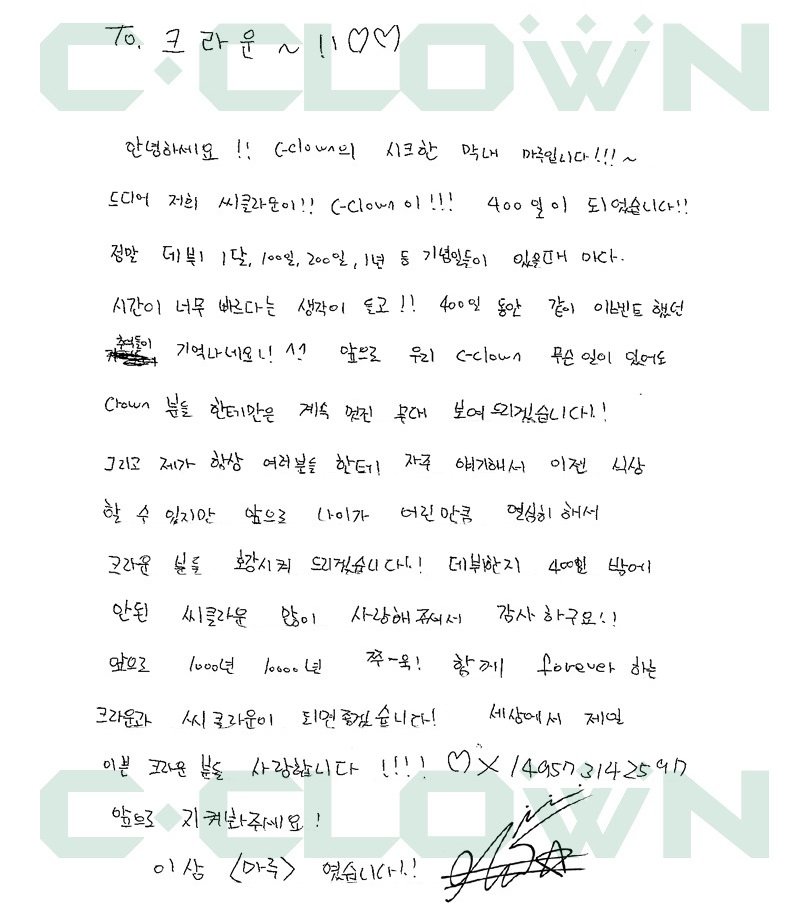 C·CLOWN
To. 크라운 ~ !! ♡♡
안녕하세요 !! C-clown의 시크한 막내 마루입니다!!! ~
드디어 저희 씨클라운이!! C-Clown 이!!! 400 일이 되었습니다!!
정말 데뷔 1달, 100일, 200일, 1년 등 기념일들이 있을때 마다.
시간이 너무 빠르다는 생각이 들고!! 400일 동안 같이 이벤트 했던
추억들이 기억나네요!! ^^ 앞으로 우리 C-Clown 무슨 일이 있어도
Crown 분들 한테만은 계속 멋진 무대 보여 드리겠습니다!!
그리고 제가 항상 여러분들 한테 자주 얘기해서 이젠 식상
할 수 있지만 앞으로 나이가 어린만큼 열심히 해서
크라운 분들 호강시켜 드리겠습니다!! 데뷔한지 400일 밖에
안된 씨클라운 많이 사랑해주셔서 감사 하구요!!
앞으로 1000년 10000년 쭈-욱! 함께 forever 하는
크라운과 씨클라운이 되면좋겠습니다! 세상에서 제일
이쁜 크라운 분들 사랑합니다 !!!! ♡ X 149573142597
앞으로 지켜봐주세요!
이상 <마루> 였습니다!!
C·CLOWN